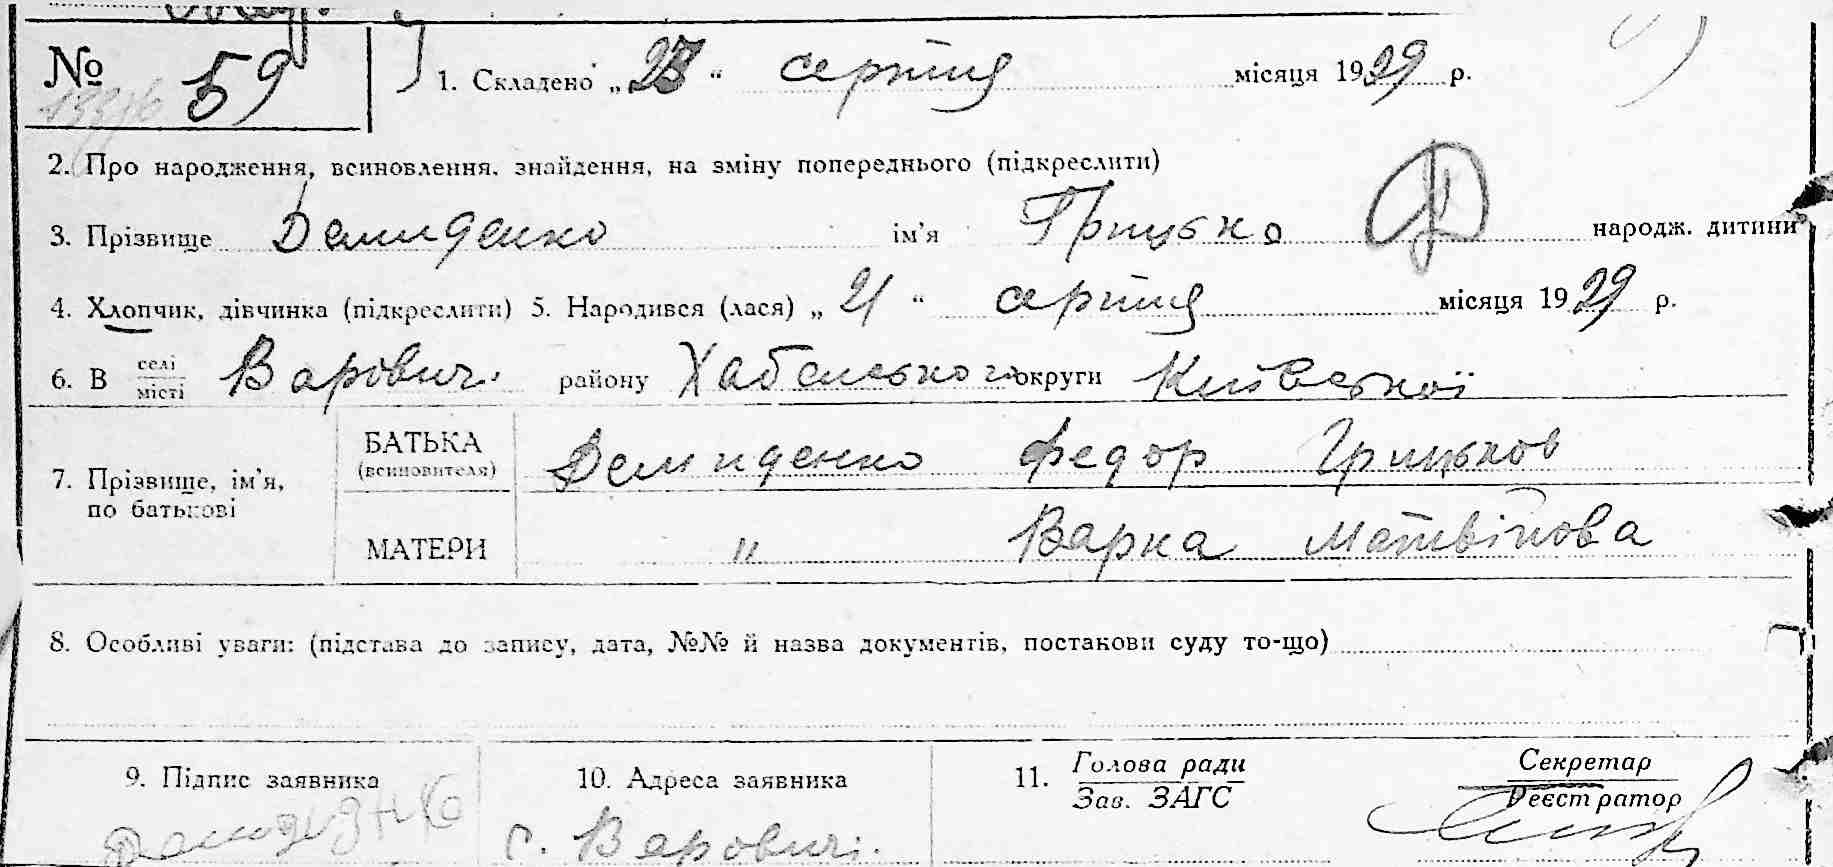 № 59 1. Складено „23“ серпня місяця 1929 р.
2. Про народження, всиновлення, знайдення, на зміну попереднього (підкреслити)
3. Прізвище Демиденко ім'я Грицько народж. дитини
4. Хлопчик, дівчинка (підкреслити) 5. Народився (лася) „21“ серпня місяця 1929 р.
6. В селі/місті Варовичі району Хабенського округи Київської
7. Прізвище, ім'я, по батькові
БАТЬКА (всиновителя) Демиденко Федор Грицьков
МАТЕРИ " Варка Матвійова
8. Особливі уваги: (підстава до запису, дата, №№ й назва документів, постакови суду то-що)
9. Підпис заявника 10. Адреса заявника 11. Голова ради Секретар
Зав. ЗАГС Реєстратор
с. Варовичі.